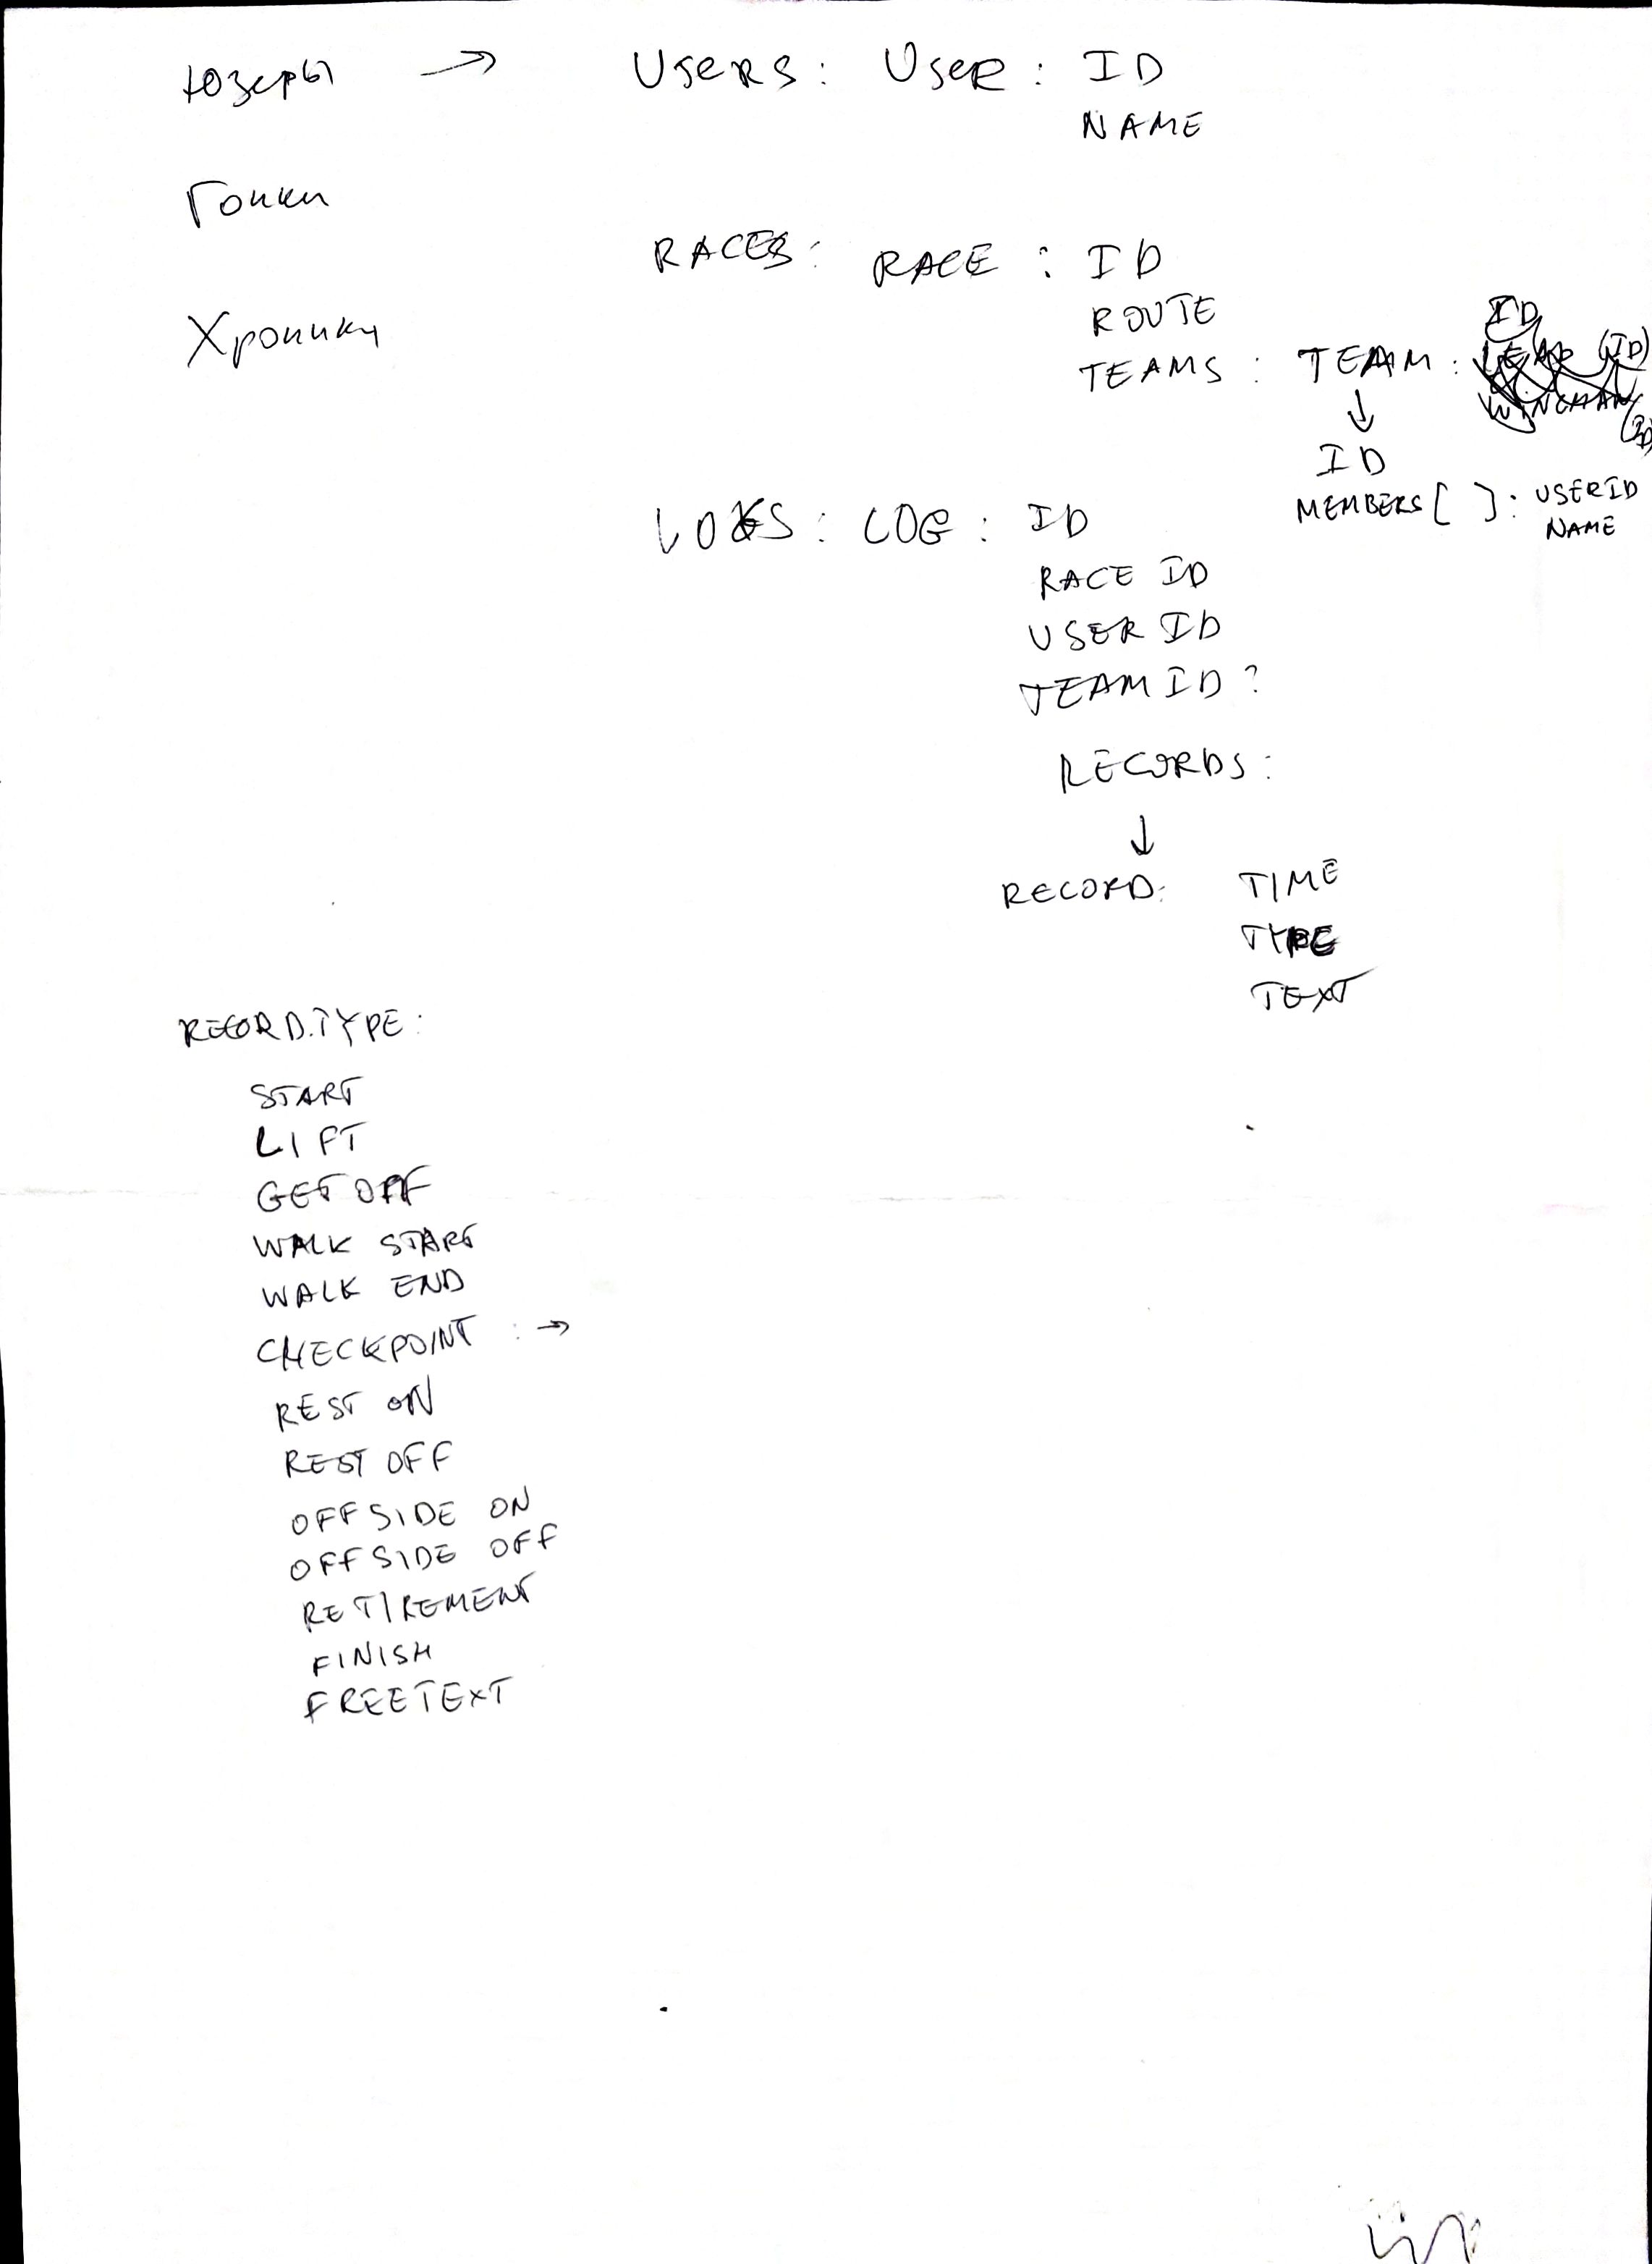 Юзеры → Users: User: ID
NAME
Гонки
RACES: RACE: ID
ROUTE
TEAMS: TEAM:
Хроники
↓
ID
MEMBERS[ ]: USERID
NAME
LOGS: LOG: ID
RACE ID
USER ID
TEAM ID?
RECORDS:
↓
RECORD: TIME
TYPE
TEXT
RECORD.TYPE:
START
LIFT
GET OFF
WALK START
WALK END
CHECKPOINT : →
REST ON
REST OFF
OFFSIDE ON
OFFSIDE OFF
RETIREMENT
FINISH
FREETEXT